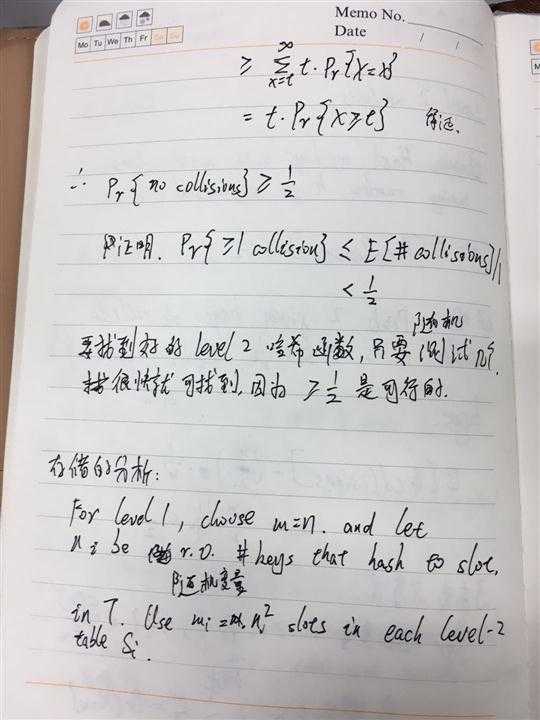 Memo No.
Mo Tu We Th Fr Sa Su
Date / /
≥ ∑_{x=t}^{∞} t · Pr{X=x}
= t · Pr{X≥t} 得证.
∴ Pr{no collisions} ≥ 1/2
证明. Pr{≥1 collision} ≤ E[# collisions]/1
< 1/2
随机
要找到好的 level 2 哈希函数, 只要 测试几个,
很快就可找到, 因为 ≥ 1/2 是可行的.
存储的分析:
For level 1, choose m=n. and let
n i be r.v. # keys that hash to slot,
随机变量
in T. Use mi = ni² slots in each level-2
table Si.